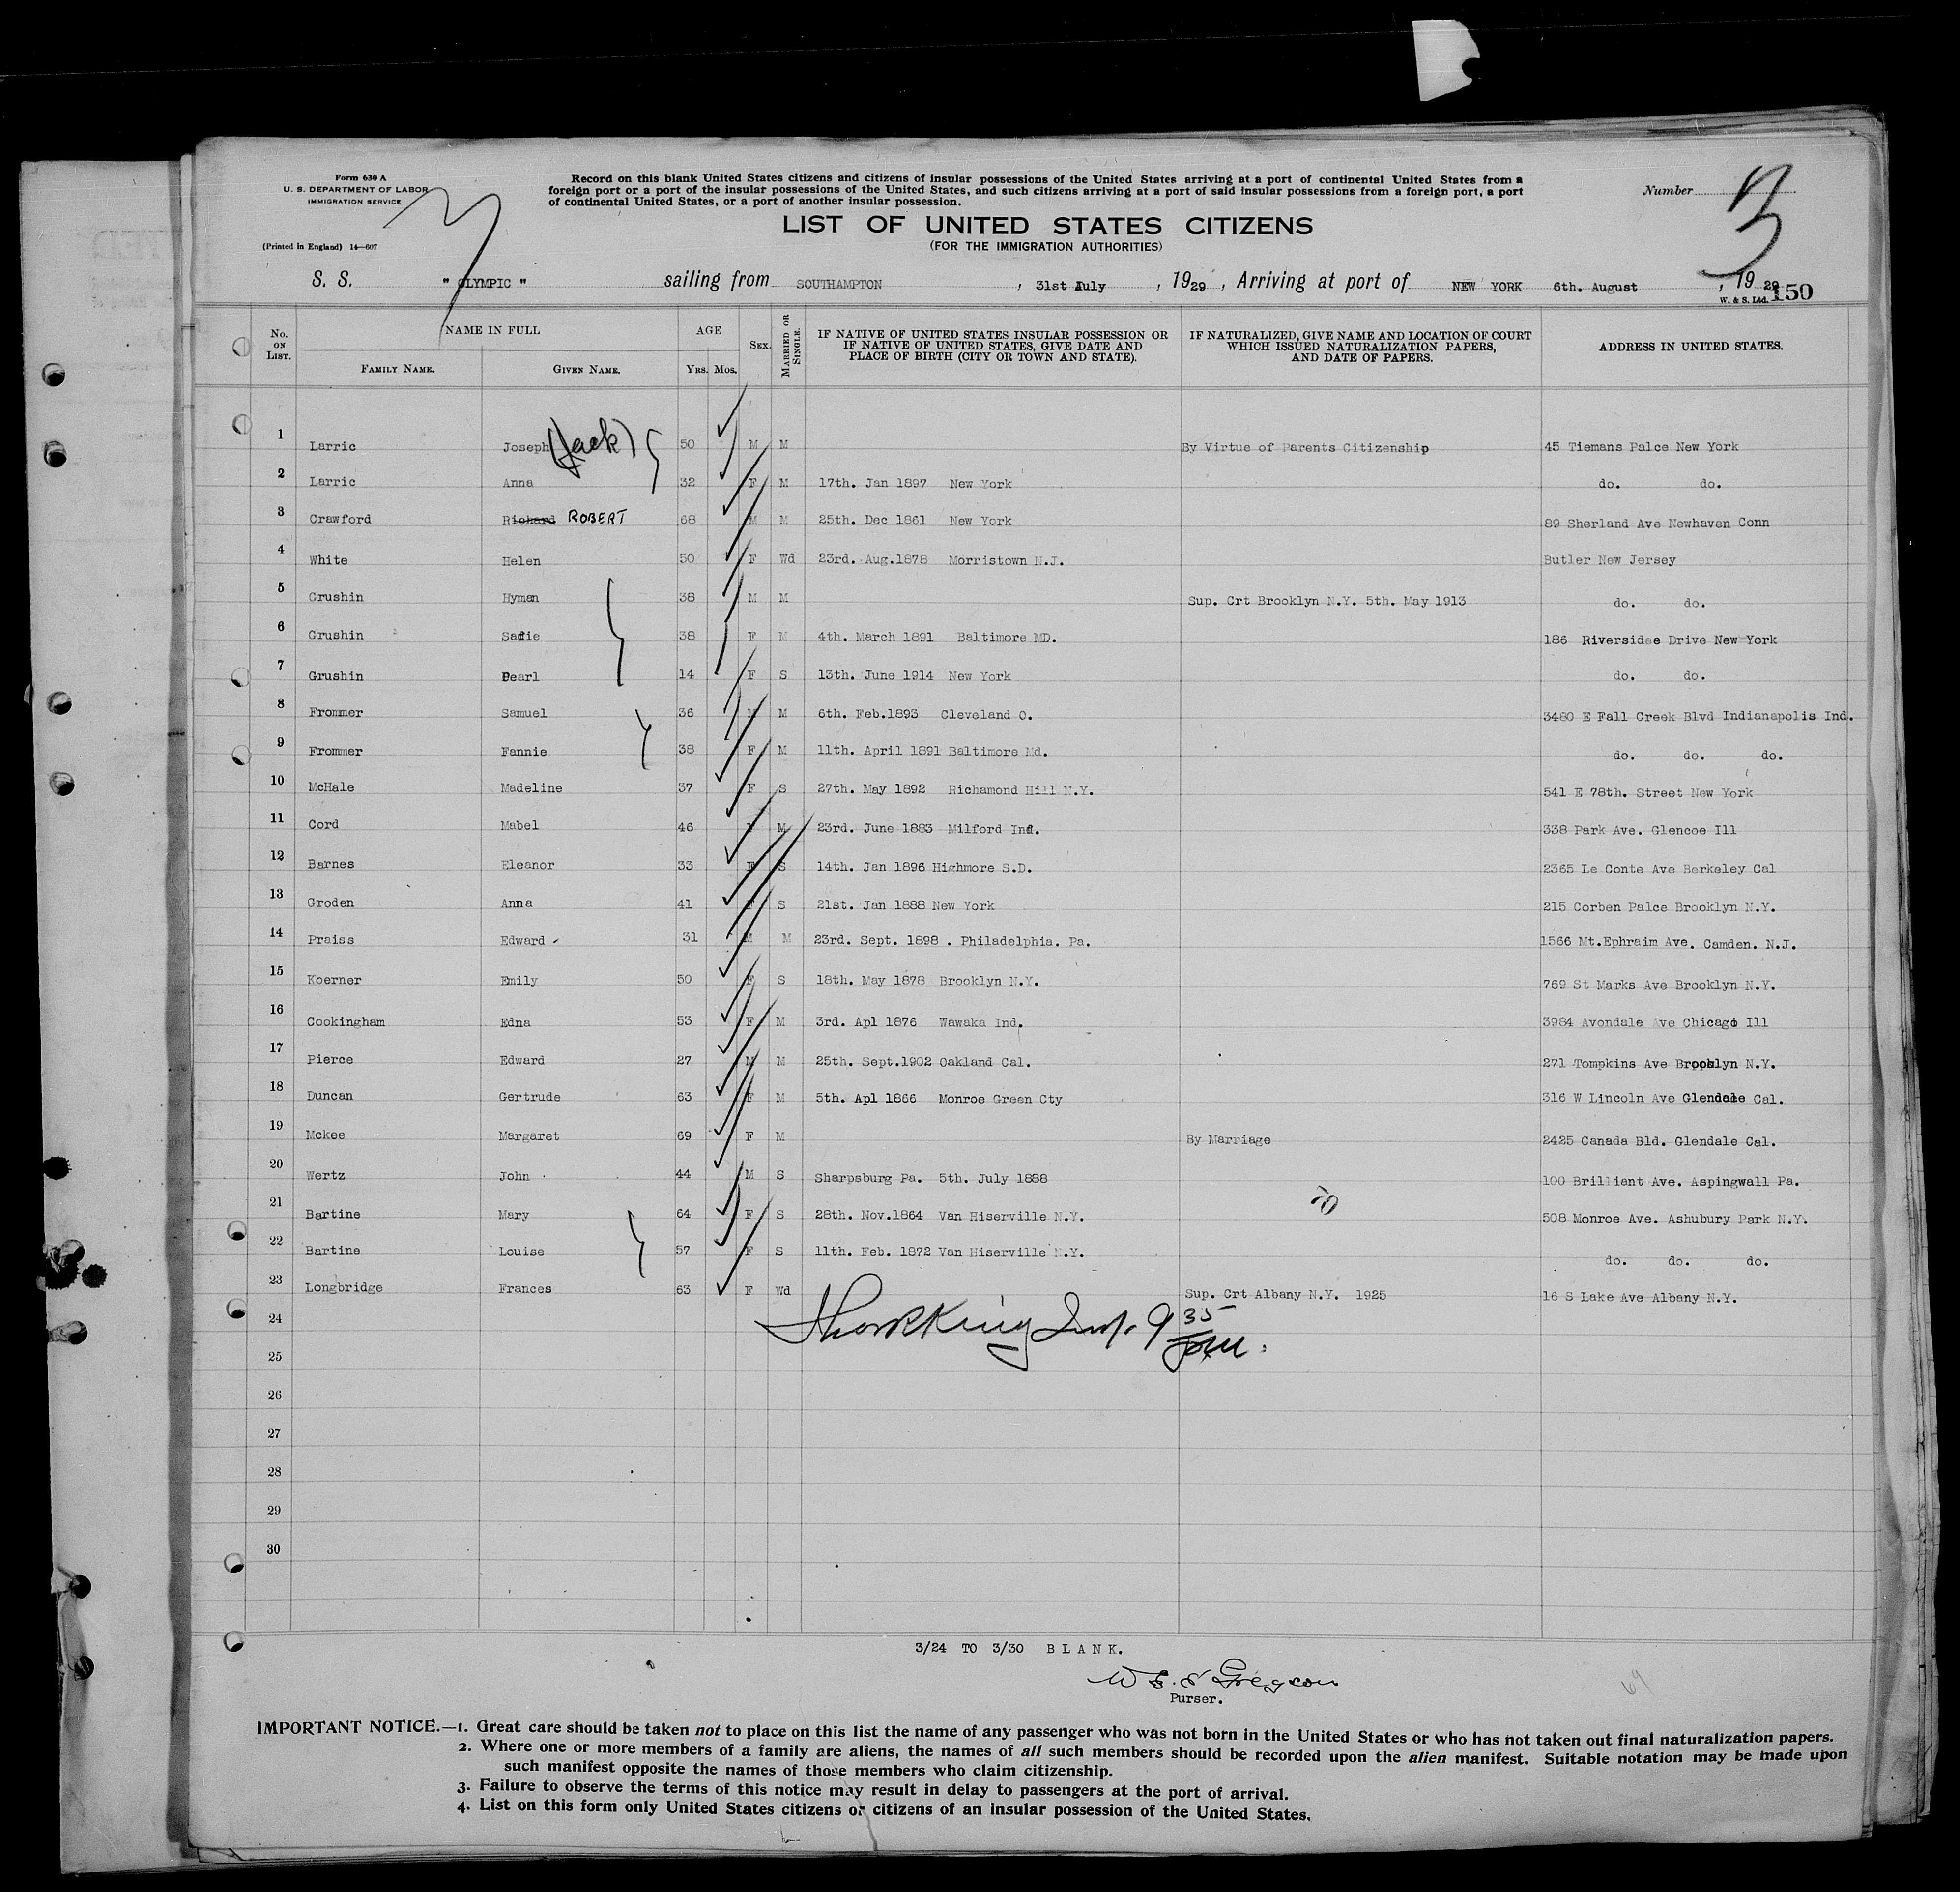 Form 630 A
U. S. DEPARTMENT OF LABOR
IMMIGRATION SERVICE
(Printed in England) 14—607
Record on this blank United States citizens and citizens of insular possessions of the United States arriving at a port of continental United States from a
foreign port or a port of the insular possessions of the United States, and such citizens arriving at a port of said insular possessions from a foreign port, a port
of continental United States, or a port of another insular possession.
Number 3
LIST OF UNITED STATES CITIZENS
(FOR THE IMMIGRATION AUTHORITIES)
S. S. " OLYMPIC " sailing from SOUTHAMPTON , 31st July , 1929 , Arriving at port of NEW YORK 6th. August , 1929
W. & S. Ltd. 150
No. ON LIST. NAME IN FULL FAMILY NAME. GIVEN NAME. AGE YRS. MOS. SEX. MARRIED OR SINGLE. IF NATIVE OF UNITED STATES INSULAR POSSESSION OR IF NATIVE OF UNITED STATES, GIVE DATE AND PLACE OF BIRTH (CITY OR TOWN AND STATE). IF NATURALIZED, GIVE NAME AND LOCATION OF COURT WHICH ISSUED NATURALIZATION PAPERS, AND DATE OF PAPERS. ADDRESS IN UNITED STATES.
1 Larric Joseph (Jack) 50 M M By Virtue of Parents Citizenship 45 Tiemans Palce New York
2 Larric Anna 32 F M 17th. Jan 1897 New York do. do.
3 Crawford Richard ROBERT 68 M M 25th. Dec 1861 New York 89 Sherland Ave Newhaven Conn
4 White Helen 50 F Wd 23rd. Aug.1878 Morristown N.J. Butler New Jersey
5 Grushin Hyman 38 M M Sup. Crt Brooklyn N.Y. 5th. May 1913 do. do.
6 Grushin Sadie 38 F M 4th. March 1891 Baltimore MD. 186 Riversidee Drive New York
7 Grushin Pearl 14 F S 13th. June 1914 New York do. do.
8 Frommer Samuel 36 M M 6th. Feb.1893 Cleveland O. 3480 E Fall Creek Blvd Indianapolis Ind.
9 Frommer Fannie 38 F M 11th. April 1891 Baltimore Md. do. do. do.
10 McHale Madeline 37 F S 27th. May 1892 Richamond Hill N.Y. 541 E 78th. Street New York
11 Cord Mabel 46 F M 23rd. June 1883 Milford Ind. 338 Park Ave. Glencoe Ill
12 Barnes Eleanor 33 F S 14th. Jan 1896 Highmore S.D. 2365 Le Conte Ave Berkeley Cal
13 Groden Anna 41 F S 21st. Jan 1888 New York 215 Corben Palce Brooklyn N.Y.
14 Praiss Edward 31 M M 23rd. Sept. 1898 . Philadelphia. Pa. 1566 Mt.Ephraim Ave. Camden. N.J.
15 Koerner Emily 50 F S 18th. May 1878 Brooklyn N.Y. 769 St Marks Ave Brooklyn N.Y.
16 Cookingham Edna 53 F M 3rd. Apl 1876 Wawaka Ind. 3984 Avondale Ave Chicago Ill
17 Pierce Edward 27 M M 25th. Sept.1902 Oakland Cal. 271 Tompkins Ave Brooklyn N.Y.
18 Duncan Gertrude 63 F M 5th. Apl 1866 Monroe Green Cty 316 W Lincoln Ave Glendale Cal.
19 Mckee Margaret 69 F M By Marriage 2425 Canada Bld. Glendale Cal.
20 Wertz John 44 M S Sharpsburg Pa. 5th. July 1888 100 Brillient Ave. Aspingwall Pa.
21 Bartine Mary 64 F S 28th. Nov.1864 Van Hiserville N.Y. 508 Monroe Ave. Ashubury Park N.Y.
22 Bartine Louise 57 F S 11th. Feb. 1872 Van Hiserville N.Y. do. do. do.
23 Longbridge Frances 63 F Wd Sup. Crt Albany N.Y. 1925 16 S Lake Ave Albany N.Y.
24
25
26
27
28
29
30
3/24 TO 3/30 BLANK.
Purser.
IMPORTANT NOTICE.—1. Great care should be taken not to place on this list the name of any passenger who was not born in the United States or who has not taken out final naturalization papers.
2. Where one or more members of a family are aliens, the names of all such members should be recorded upon the alien manifest. Suitable notation may be made upon
such manifest opposite the names of those members who claim citizenship.
3. Failure to observe the terms of this notice may result in delay to passengers at the port of arrival.
4. List on this form only United States citizens or citizens of an insular possession of the United States.